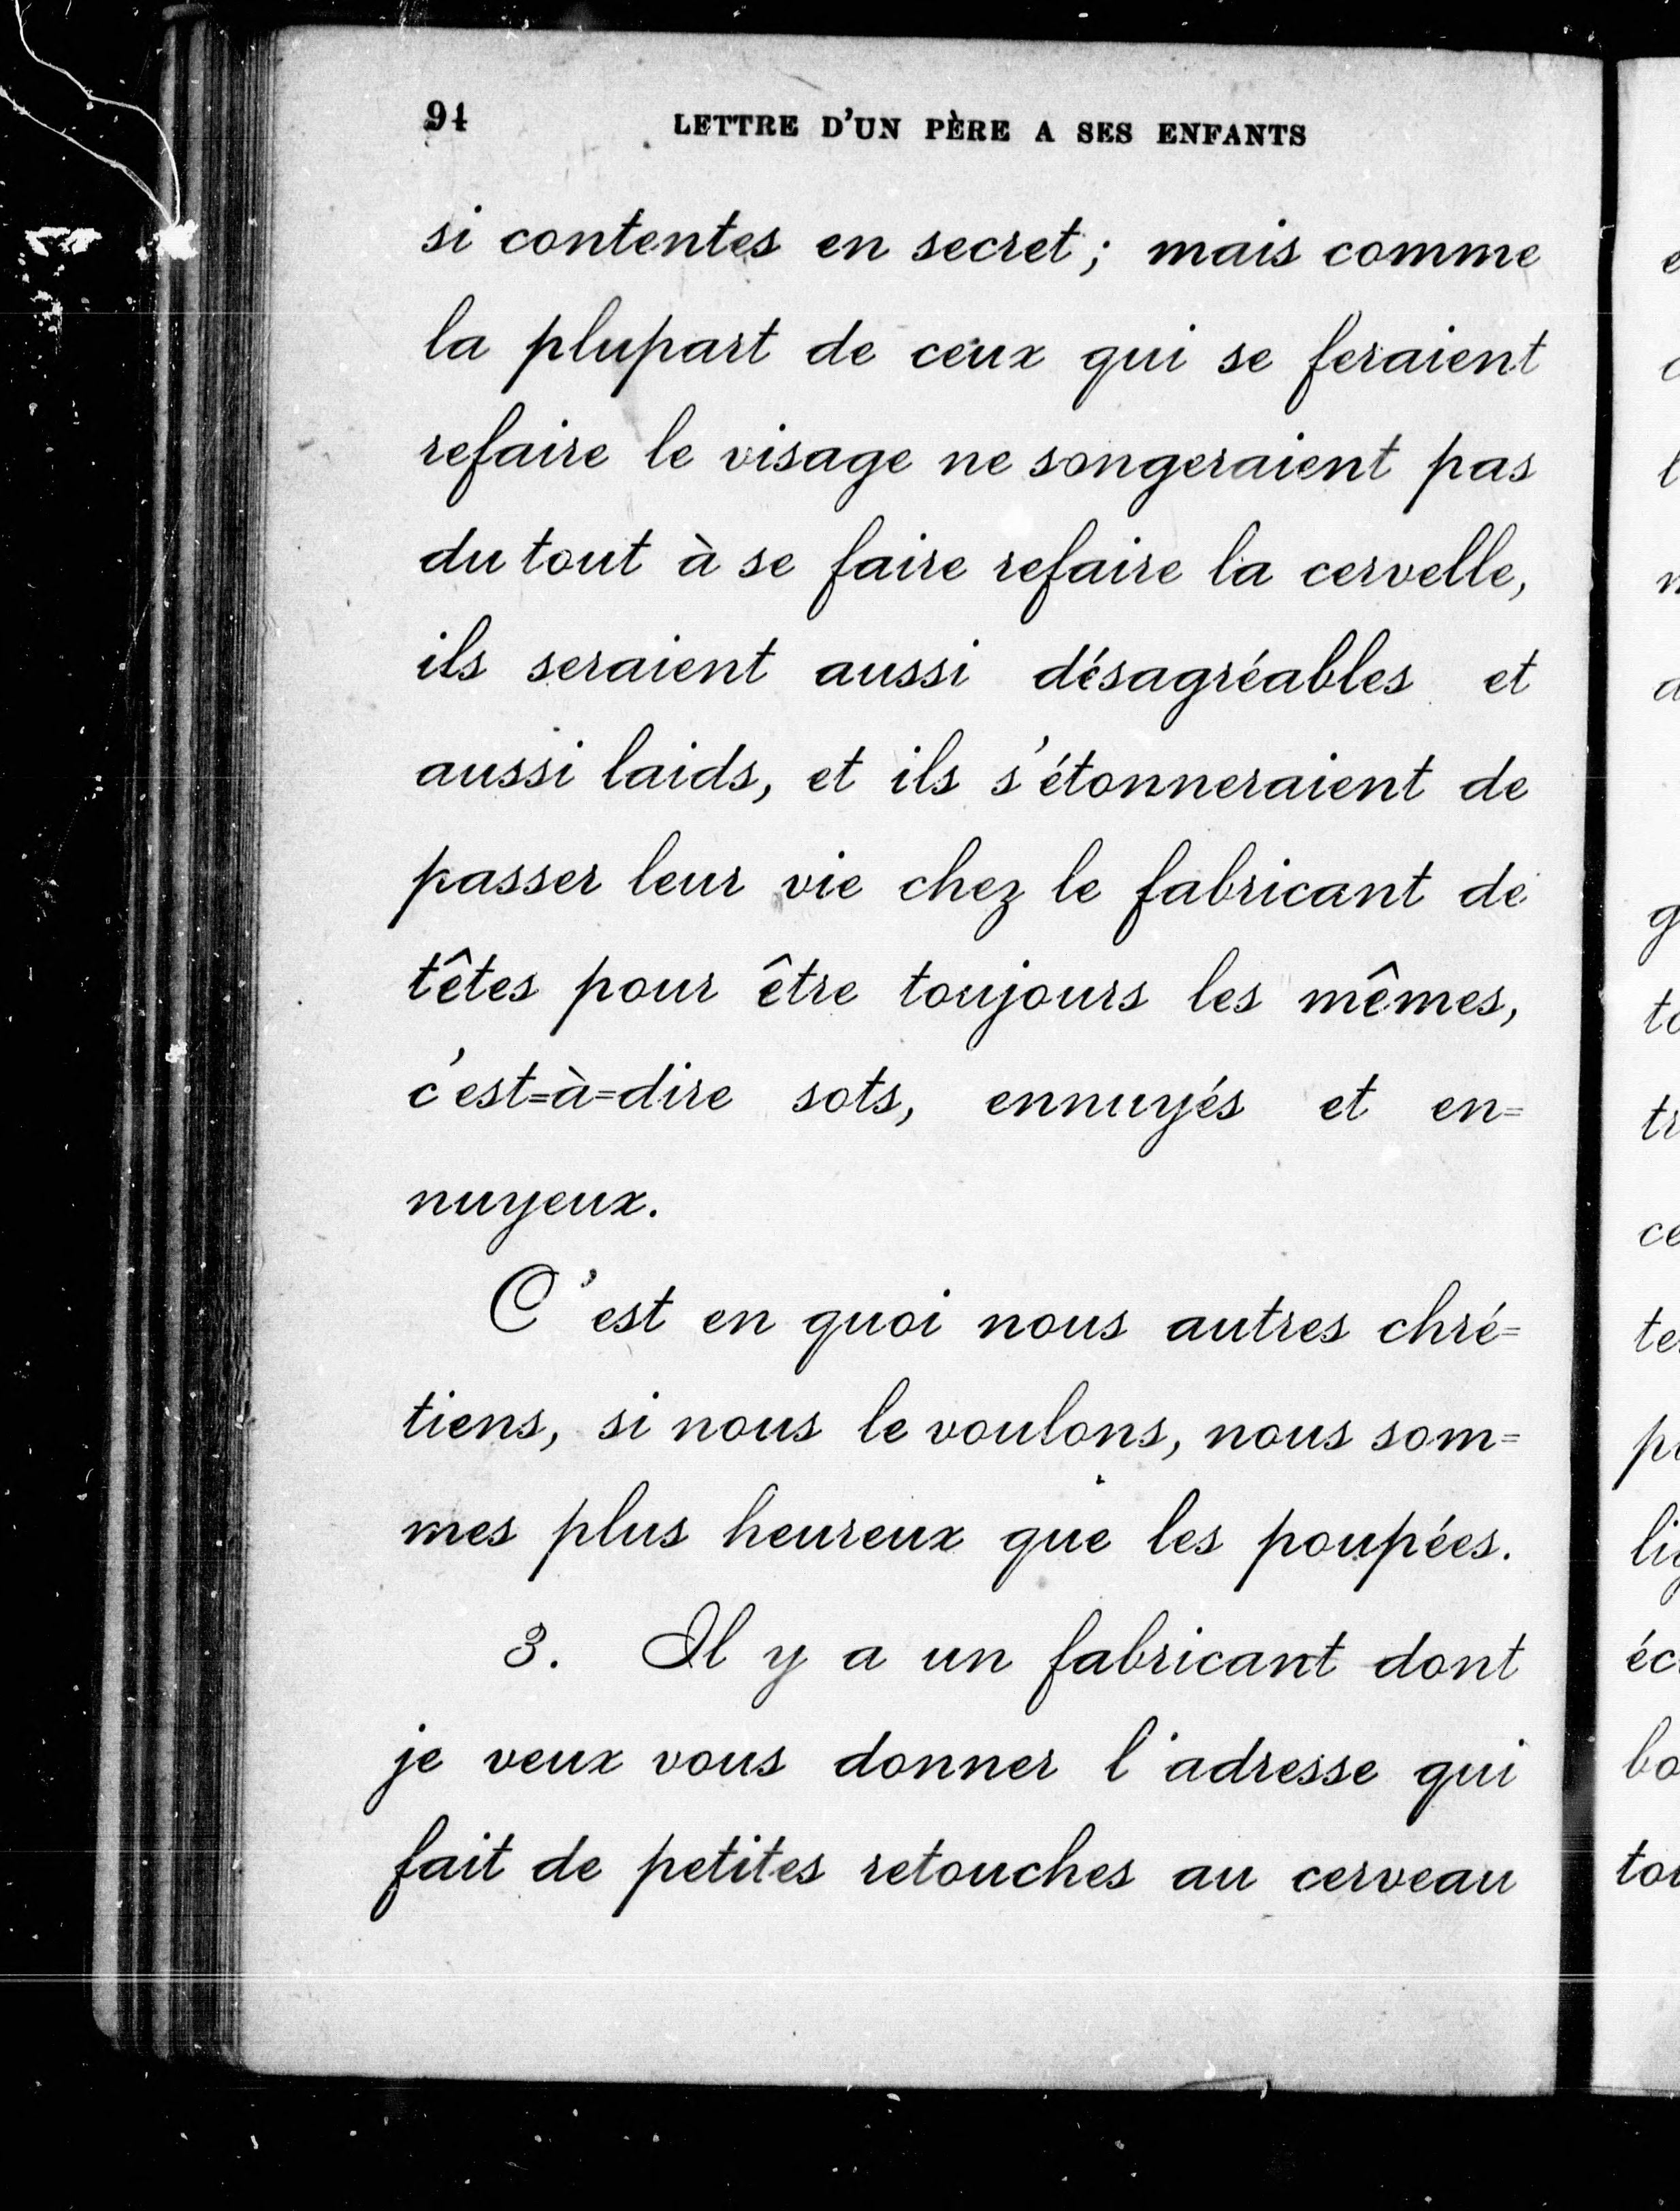 94 LETTRE D'UN PÈRE A SES ENFANTS
si contentes en secret ; mais comme
la plupart de ceux qui se feraient
refaire le visage ne songeraient pas
du tout à se faire refaire la cervelle,
ils seraient aussi désagréables et
aussi laids, et ils s'étonneraient de
passer leur vie chez le fabricant de
têtes pour être toujours les mêmes,
c'est=à=dire sots, ennuyés et en=
nuyeux.
C'est en quoi nous autres chré=
tiens, si nous le voulons, nous som=
mes plus heureux que les poupées.
3. Il y a un fabricant dont
je veux vous donner l'adresse qui
fait de petites retouches au cerveau